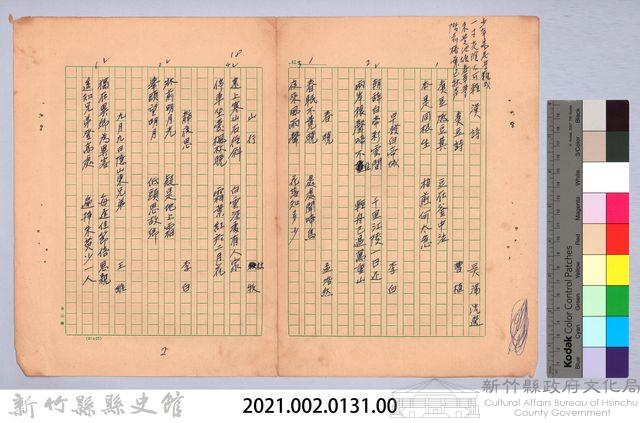 少年易老學難成
一寸光陰不可輕
未覺池塘春草夢
階前梧葉已秋聲
漢詩 吳濁流選
煮豆詩 曹植
煮豆燃豆萁 豆在釜中泣
本是同根生 相煎何太急
早發白帝城 李白
朝辭白帝彩雲間 千里江陵一日還
兩岸猿聲啼不住 輕舟已過萬重山
春曉 孟浩然
春眠不覺曉 處處聞啼鳥
夜來風雨聲 花落知多少
山行 杜牧
遠上寒山石徑斜 白雲深處有人家
停車坐愛楓林晚 霜葉紅於二月花
靜夜思 李白
牀前明月光 疑是地上霜
擧頭望明月 低頭思故鄉
九月九日憶山東兄弟 王維
獨在異鄉為異客 每逢佳節倍思親
遙知兄弟登高處 遍揷茱萸少一人
2
新竹縣縣史館
2021.002.0131.00
新竹縣政府文化局
Cultural Affairs Bureau of Hsinchu
County Government
Kodak Color Control Patches
Black
3/Color
White
Magenta
Red
Yellow
Green
Cyan
Blue